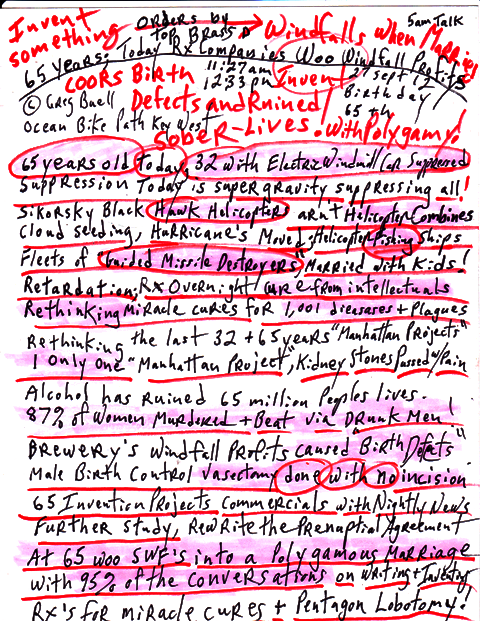 Invent something
orders by top Brass →
Windfalls when Married
5am Talk
65 years; Today Rx Companies Woo Windfall Profits
COORS Birth
11:27am
12:33 pm
Invent
27 sept 12
Birthday
65 th
© Greg Buell
Defects and Ruined
Ocean Bike Path Key West
SOBER-Lives. with Polygamy!
65 years old Today, 32 with Electric Windmill Car Suppressed
Suppression Today is supergravity suppressing all!
Sikorsky Black Hawk Helicopters arn't Helicopter Combines
Cloud seeding, Hurricane's Moved, Helicopter fishing ships
Fleets of "Guided Missile Destroyers" Married with Kids!
Retardation; Rx Overnight cure from intellectuals
Rethinking Miracle cures for 1,001 diseases + Plagues
Rethinking the last 32 + 65 years "Manhattan Projects"
1 Only one "Manhattan Project", Kidney Stones Passed w/Pain
Alcohol has Ruined 65 million Peoples lives.
87% of Women Murdered + Beat via Drunk Men!
Brewery's Windfall Profits caused "Birth Defects"
Male Birth Control Vasectomy done with no incision
65 Invention Projects commercials with Nightly News
Further study, Rewrite the Prenaptial Agreement
At 65 woo SWF's into a Polygamous Marriage
with 95% of the conversations on writing + Inventing
Rx's for miracle cures + Pentagon Lobotomy!